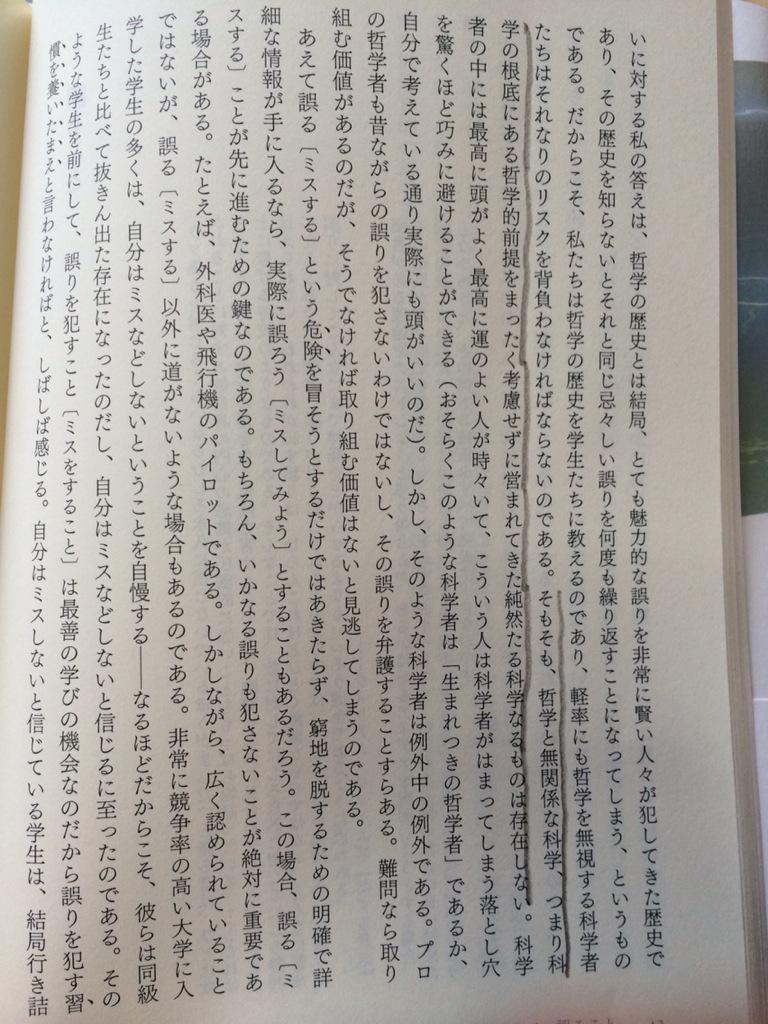 いに対する私の答えは、哲学の歴史とは結局、とても魅力的な誤りを非常に賢い人々が犯してきた歴史で
あり、その歴史を知らないとそれと同じ忌々しい誤りを何度も繰り返すことになってしまう、というもの
である。だからこそ、私たちは哲学の歴史を学生たちに教えるのであり、軽率にも哲学を無視する科学者
たちはそれなりのリスクを背負わなければならないのである。そもそも、哲学と無関係な科学、つまり科
学の根底にある哲学的前提をまったく考慮せずに営まれてきた純然たる科学なるものは存在しない。科学
者の中には最高に頭がよく最高に運のよい人が時々いて、こういう人は科学者がはまってしまう落とし穴
を驚くほど巧みに避けることができる（おそらくこのような科学者は「生まれつきの哲学者」であるか、
自分で考えている通り実際にも頭がいいのだ）。しかし、そのような科学者は例外中の例外である。プロ
の哲学者も昔ながらの誤りを犯さないわけではないし、その誤りを弁護することすらある。難問なら取り
組む価値があるのだが、そうでなければ取り組む価値はないと見逃してしまうのである。
あえて誤る〔ミスする〕という危険を冒そうとするだけではあきたらず、窮地を脱するための明確で詳
細な情報が手に入るなら、実際に誤ろう〔ミスしてみよう〕とすることもあるだろう。この場合、誤る〔ミ
スする〕ことが先に進むための鍵なのである。もちろん、いかなる誤りも犯さないことが絶対に重要であ
る場合がある。たとえば、外科医や飛行機のパイロットである。しかしながら、広く認められていること
ではないが、誤る〔ミスする〕以外に道がないような場合もあるのである。非常に競争率の高い大学に入
学した学生の多くは、自分はミスなどしないということを自慢する――なるほどだからこそ、彼らは同級
生たちと比べて抜きん出た存在になったのだし、自分はミスなどしないと信じるに至ったのである。その
ような学生を前にして、誤りを犯すこと〔ミスをすること〕は最善の学びの機会なのだから誤りを犯す習
慣を養いたまえと言わなければと、しばしば感じる。自分はミスしないと信じている学生は、結局行き詰